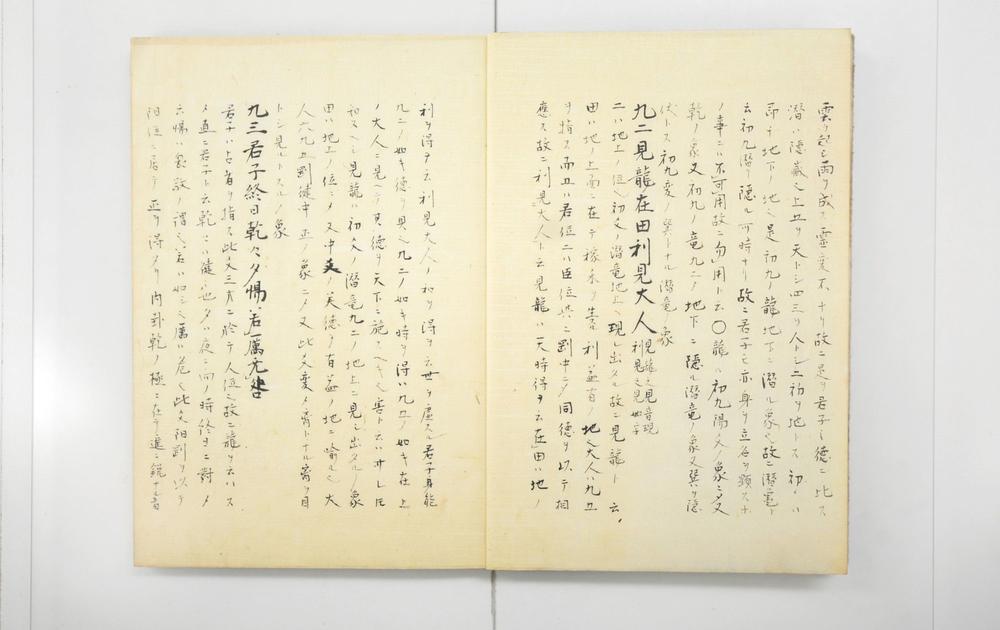 雲ヲ起シ雨ヲ成ス霊変不ナリ故ニ是ヲ君子ノ徳ニ比ス
潜ハ隠蔵也上五ヲ天トシ四三ヲ人トシ二初ヲ地トス初ハ
即チ地下ノ地也是初九ノ龍地下ニ潜ル象也故ニ潜竜ト
云初九潜リ隠ル可時ナリ故ニ君子モ亦身ヲ立名ヲ顕スナ
ノ事ニハ不可用故ニ勿用ト云〇龍ハ初九陽爻ノ象ニメ又
乾ノ象又初九ノ竜九二ノ地下ニ隠ル潜竜ノ象又巽ヲ隠
伏トス初九変メ巽トナル潜竜ノ象
九二見龍在田利見大人見龍之見音現利見之見如字
二ハ地上ノ位也初爻ノ潜竜地上ニ現レ出タル故ニ見龍ト云
田ハ地ノ上面ニ在テ稼禾ヲ生シ利益有ノ地也大人ハ九五
ヲ指ス而五ハ君位二ハ臣位共ニ剛中ニメ同徳ヲ以テ相
應ス故ニ利見大人ト云見龍ハ天時得ヲ云在田ハ地ノ
利ヲ得ヲ云利見大人人ノ和ヲ得ヲ云世ニ處スル君子身能
九二ノ如キ徳ヲ具ヘ九二ノ如キ時ヲ得ハ九五ノ如キ在上
ノ大人ニ見ヘテ其徳ヲ天下ニ施スヘキ
見龍ハ初爻ノ潜竜九二ノ地上ニ見レ出タルノ象
田ハ地上ノ位ニメ又中爻ノ美徳ヲ有益ノ地ニ喩ル也大
人六九五剛健中正ノ象ニメ又此爻変メ離トナル離ヲ目
トシ見ルトスルノ象
九三君子終日乾々夕惕若厲无咎
君子ハ占者ヲ指ス此爻三才ニ於テ人位也故ニ龍ヲ云ハス
メ直ニ君子ト云乾々ハ健也夕ハ夜ニ向ノ時終日ニ對メ
云惕ハ
陽位ニ居テ正ヲ得タリ内卦乾ノ極ニ在テ進ニ鋭ナル者